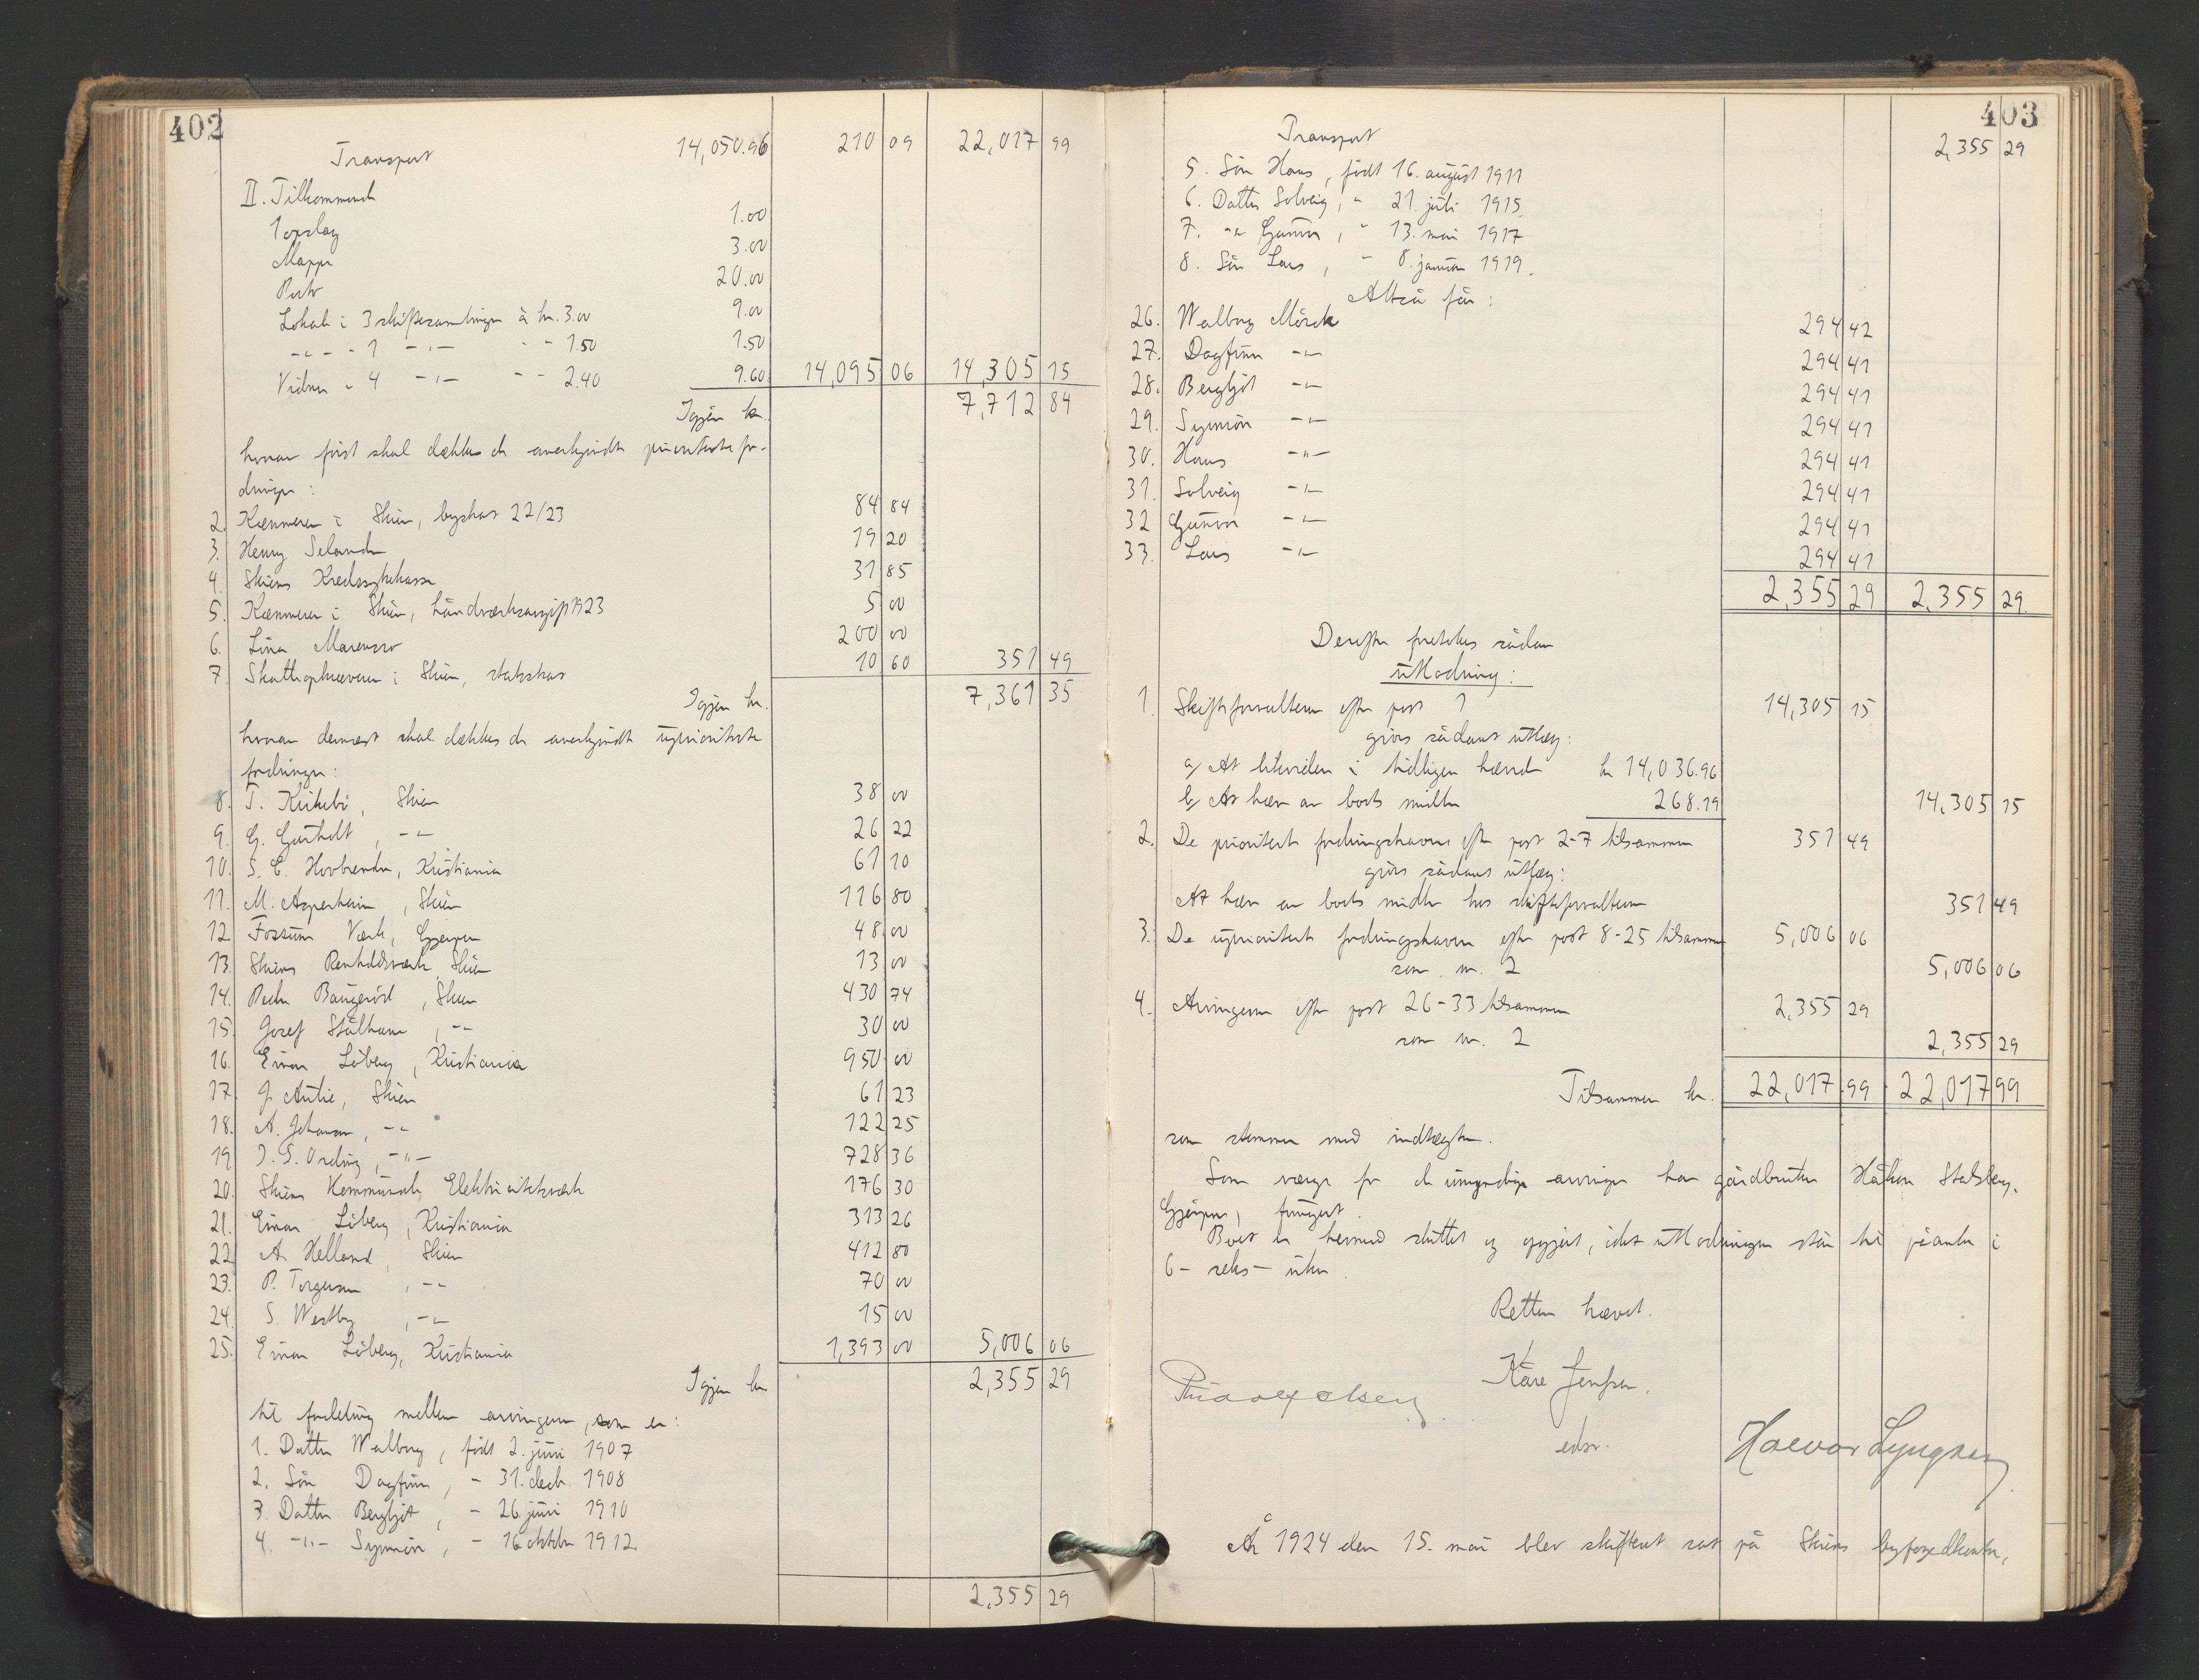 402
Transport 14,050.96 210 09 22,017 99
II. Tilkommende
1 opslag 1.00
Mappe 3.00
Porto 20.00
Lokale i 3 skiftesamlinger à kr. 3.00 9.00
-"- - 1 -"- - - 1.50 1.50
Vidner - 4 -"- - - 2.40 9.60 14,095 06 14,305 15
Igjen kr. 7,712 84
hvorav først skal dækkes de anerkjendte prioriterte for-
dringer:
2. Kæmneren i Skien, byskat 22/23 84 84
3. Henry Selander 19 20
4. Skiens Kredssykekasse 31 85
5. Kæmneren i Skien, håndverksavgift 1923 5 00
6. Lina Marensro 200 00
7. Skatteopkræveren i Skien, statsskat 10 60 351 49
Igjen kr. 7,361 35
hvorav dernæst skal dækkes de anerkjendte uprioriterte
fordringer:
8. T. Kirkebø, Skien 38 00
9. G. Gurholt, -"- 26 22
10. S. E. Hovbrender, Kristiania 61 10
11. M. Asperheim, Skien 116 80
12. Fossum Verk, Gjerpen 48 00
13. Skiens Renholdsverk, Skien 13 00
14. Peder Baugerød, Skien 430 74
15. Josef Stålhane, -"- 30 00
16. Einar Løberg, Kristiania 950 00
17. J. Autie, Skien 61 23
18. A. Johansen, -"- 122 25
19. J. S. Ording, -"- 728 36
20. Skiens Kommunale Elektricitetsverk 176 30
21. Einar Løberg, Kristiania 313 26
22. A. Helland, Skien 412 80
23. P. Torgersen, -"- 70 00
24. S. Westby, -"- 15 00
25. Einar Løberg, Kristiania 1,393 00 5,006 06
Igjen kr. 2,355 29
til fordeling mellem arvingerne, som er:
1. Datter Walborg, født 2. juni 1907
2. Søn Dagfinn, - 31. decb. 1908
3. Datter Bergljot, - 26. juni 1910
4. -"- Synnøve, - 16 oktober 1912
2,355 29
403
Transport 2,355 29
5. Søn Hans, født 16. august 1911
6. Datter Solveig, " 21. juli 1915.
7. -"- Gunvor, " 13. mai 1917
8. Søn Lars, - 8. januar 1919.
Altså får:
26. Walborg Mörck 294 42
27. Dagfinn -"- 294 41
28. Bergljot -"- 294 41
29. Synnøve -"- 294 41
30. Hans -"- 294 41
31. Solveig -"- 294 41
32. Gunvor -"- 294 41
33. Lars -"- 294 41
2,355 29 2,355 29
Derefter foretokes sådan
utlodning:
1. Skifteforvalteren efter post 1 14,305 15
gives sådant utlæg:
a/ At beholde i tidligere hævede kr 14,036.96
b/ At hæve av boets midler 268.19 14,305 15
2. De prioriterte fordringshavere efter post 2-7 tilsammen 351 49
gives sådant utlæg:
At hæve av boets midler hos skifteforvalteren 351 49
3. De uprioriterte fordringshavere efter post 8-25 tilsammen 5,006 06
som nr. 2 5,006 06
4. Arvingerne efter post 26-33 tilsammen 2,355 29
som nr. 2 2,355 29
Tilsammen kr. 22,017.99 22,017 99
som stemmer med indtægten.
Som verge for de umyndige arvinger har gårdbruker Håkon Stalsberg,
Gjerpen, fungert.
Boet er hermed sluttet og opgjort, idet utlodningen står til påanke i
6 - seks - uker.
Retten hævet.
Kåre Jensen.
edsv. Halvor Lyngåsen
År 1924 den 15. mai blev skifteret sat på Skiens byfogedkontor,